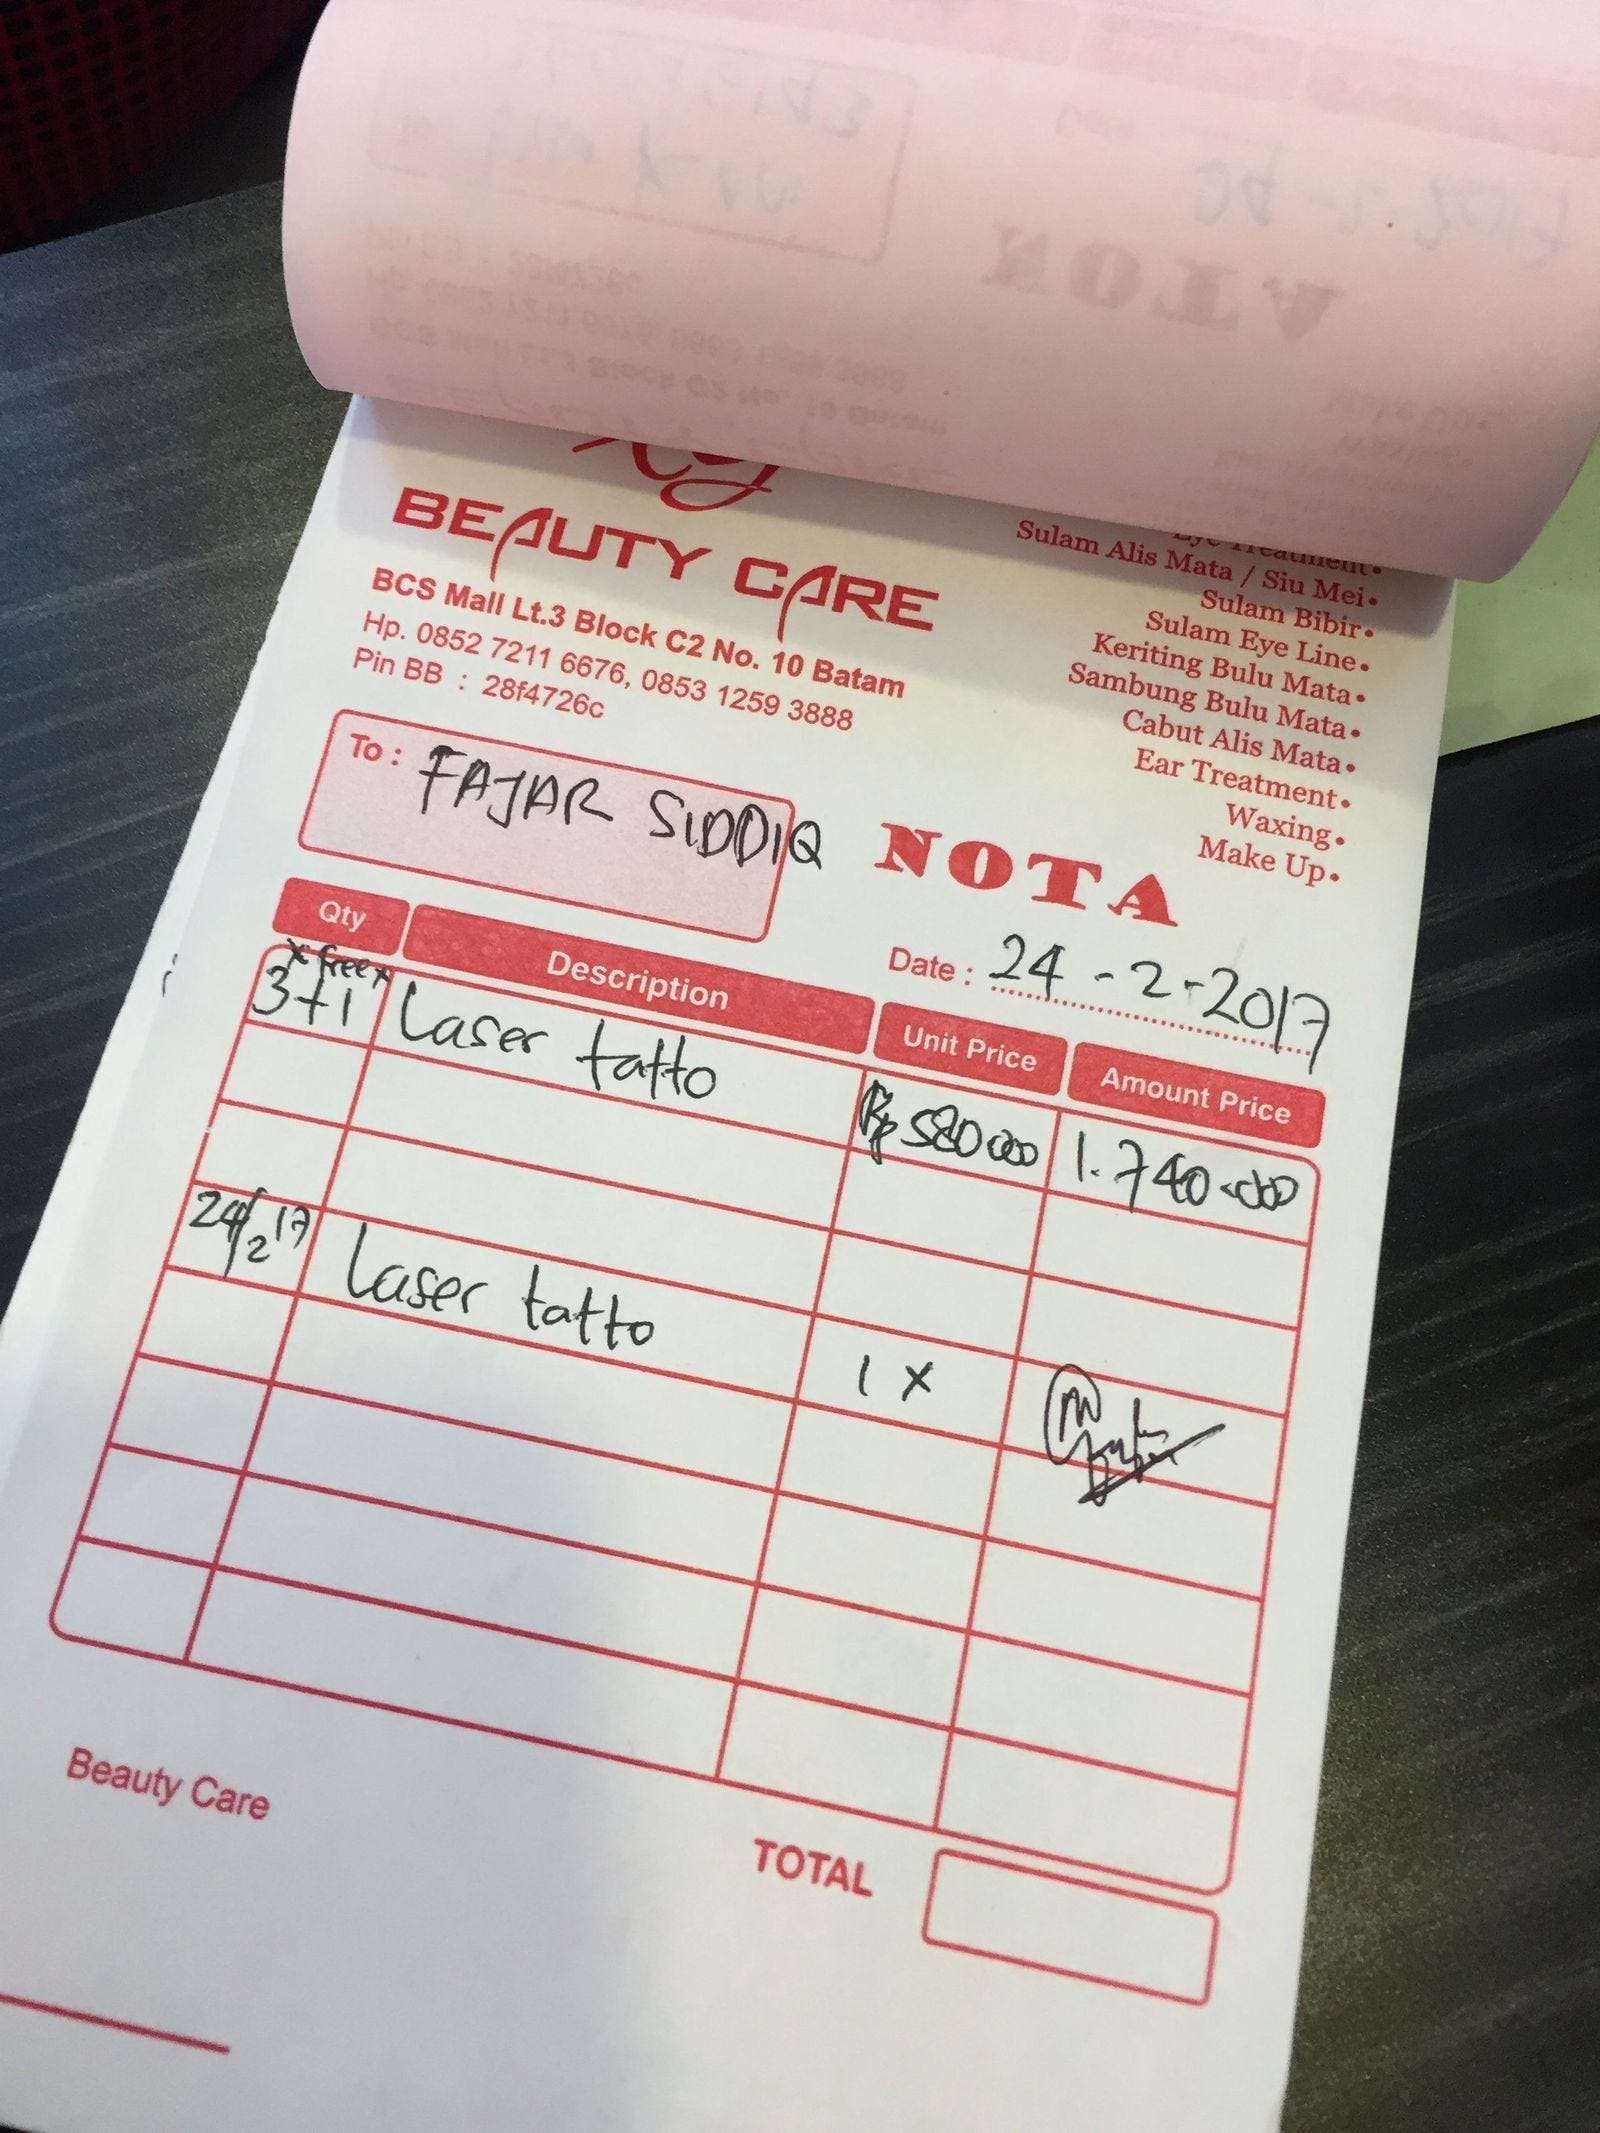 BEAUTY CARE
BCS Mall Lt.3 Block C2 No. 10 Batam
Hp. 0852 7211 6676, 0853 1259 3888
Pin BB : 28f4726c
Eye Treatment•
Sulam Alis Mata / Siu Mei•
Sulam Bibir•
Sulam Eye Line•
Keriting Bulu Mata•
Sambung Bulu Mata•
Cabut Alis Mata•
Ear Treatment•
Waxing•
Make Up•
To : FAJAR SIDDIQ
NOTA
Date : 24-2-2017
Qty Description Unit Price Amount Price
* free *
3+1 Laser tatto Rp 580 000 1.740.000
24/2 17 Laser tatto 1 x
Beauty Care
TOTAL